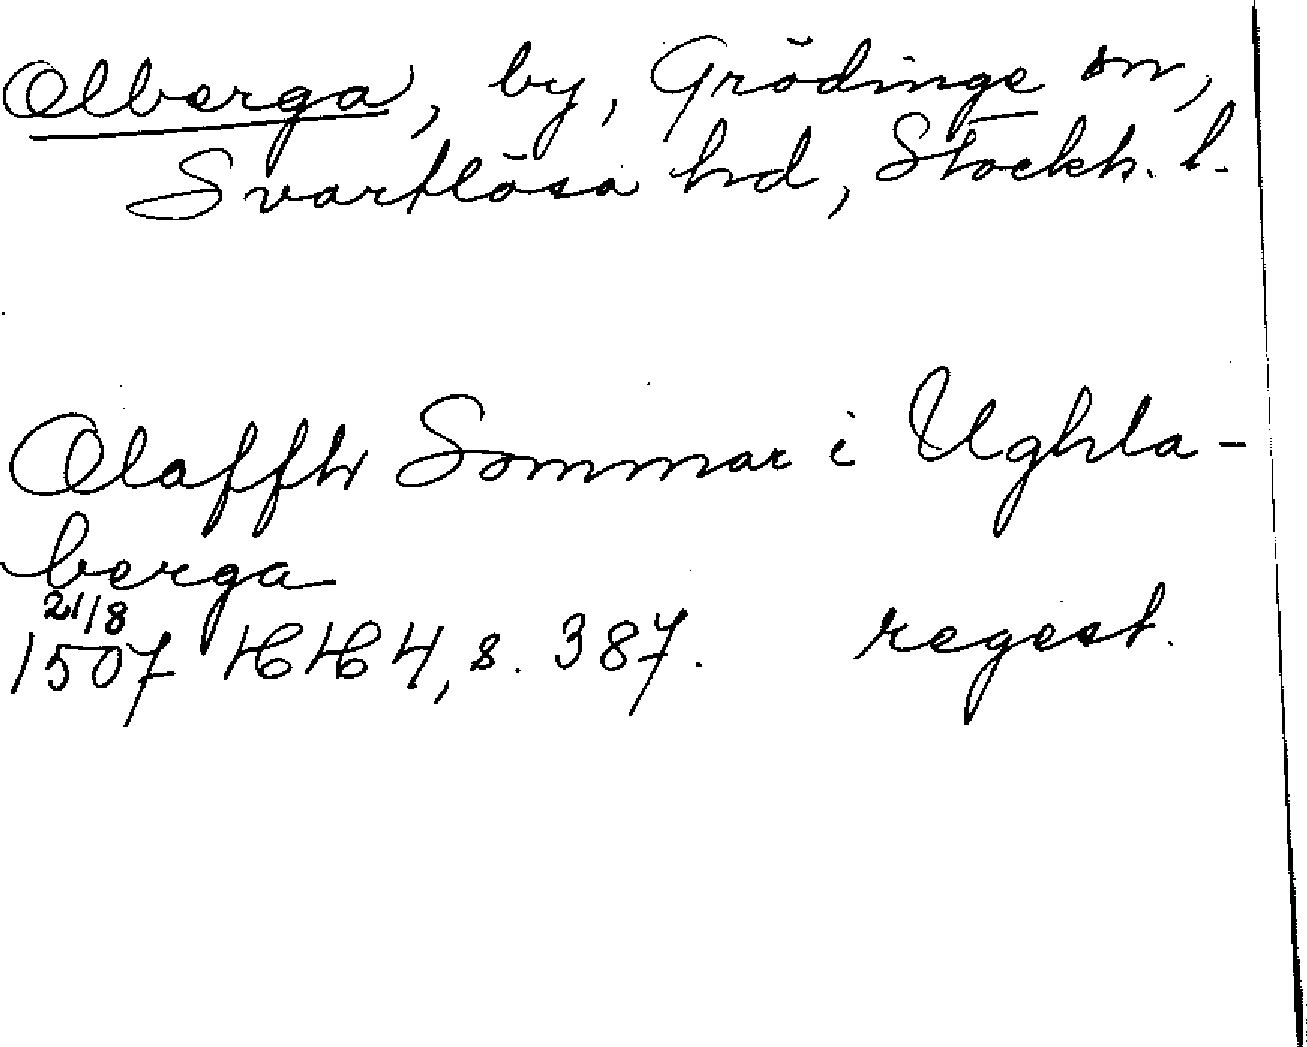 Olberga, by, Grödinge sn,
Svartlösa hd, Stockh. l.
Olaffh Sommar i Ughla-
berga
21/8
1507 HH 4, s. 387. regest.